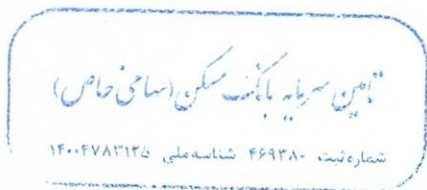 تامین سرمایه بانک مسکن (سهامی خاص)
شماره ثبت ۴۶۹۳۸۰ شناسه ملی ۱۴۰۰۴۷۸۳۱۲۵